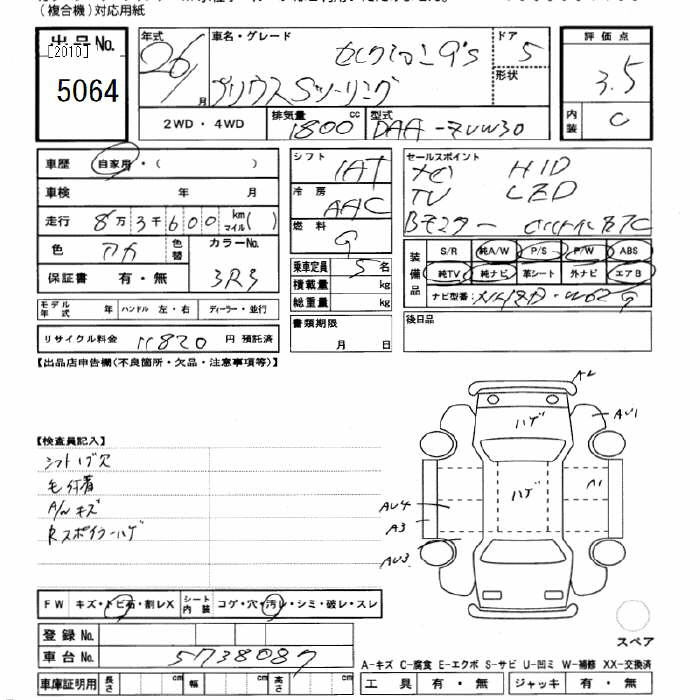 (複合機)対応用紙
出品No.
[2010]
5064
年式 車名・グレード ドア 評価点
26 年 プリウスSツーリング セレクションG's 5 3.5
月 形状
2WD・4WD 排気量 1800 cc 型式 DAA-ZVW30 内装 C
車歴 自家用・( )
車検 年 月
走行 8万3千600 km マイル( )
色 アカ 色替 カラーNo. 3R3
保証書 有・無
モデル年式 年 ハンドル 左・右 ディーラー・並行
リサイクル料金 11820 円 預託済
シフト IAT
冷房 AAC
燃料 G
乗車定員 5 名
積載量 kg
総重量 kg
書類期限
月 日
セールスポイント
HID
TV LED
Bモニター
装備品 S/R 純A/W P/S P/W ABS
純TV 純ナビ 革シート 外ナビ エアB
ナビ型番:
後日品
【出品店申告欄(不良箇所・欠品・注意事項等)】
【検査員記入】
シフトハゲ穴
毛付着
A/Wキズ
Rスポイラーハゲ
A2
AU1
ハゲ
ハゲ
A1
AU4
A3
AU3
FW キズ・トビ石・割レX シート内装 コゲ・穴・汚レ・シミ・破レ・スレ
登録No.
車台No. 5738087
車庫証明用 長さ cm 幅 cm 高さ cm
スペア
A-キズ C-腐食 E-エクボ S-サビ U-凹ミ W-補修 XX-交換済
工具 有・無 ジャッキ 有・無